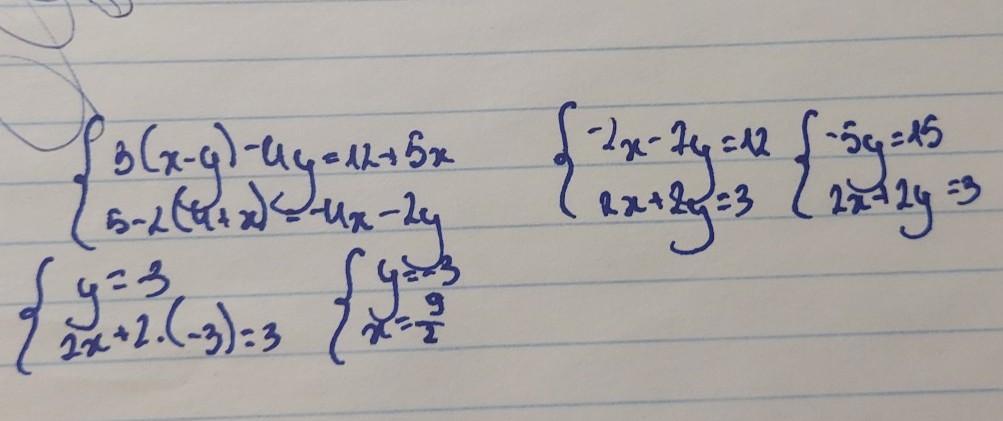 { 3(x-y)-4y=12+5x
5-2(4+x)=-4x-2y
{ -2x-7y=12
2x+2y=3
{ -5y=15
2x+2y=3
{ y=3
2x+2.(-3)=3
{ y=-3
x=9/2